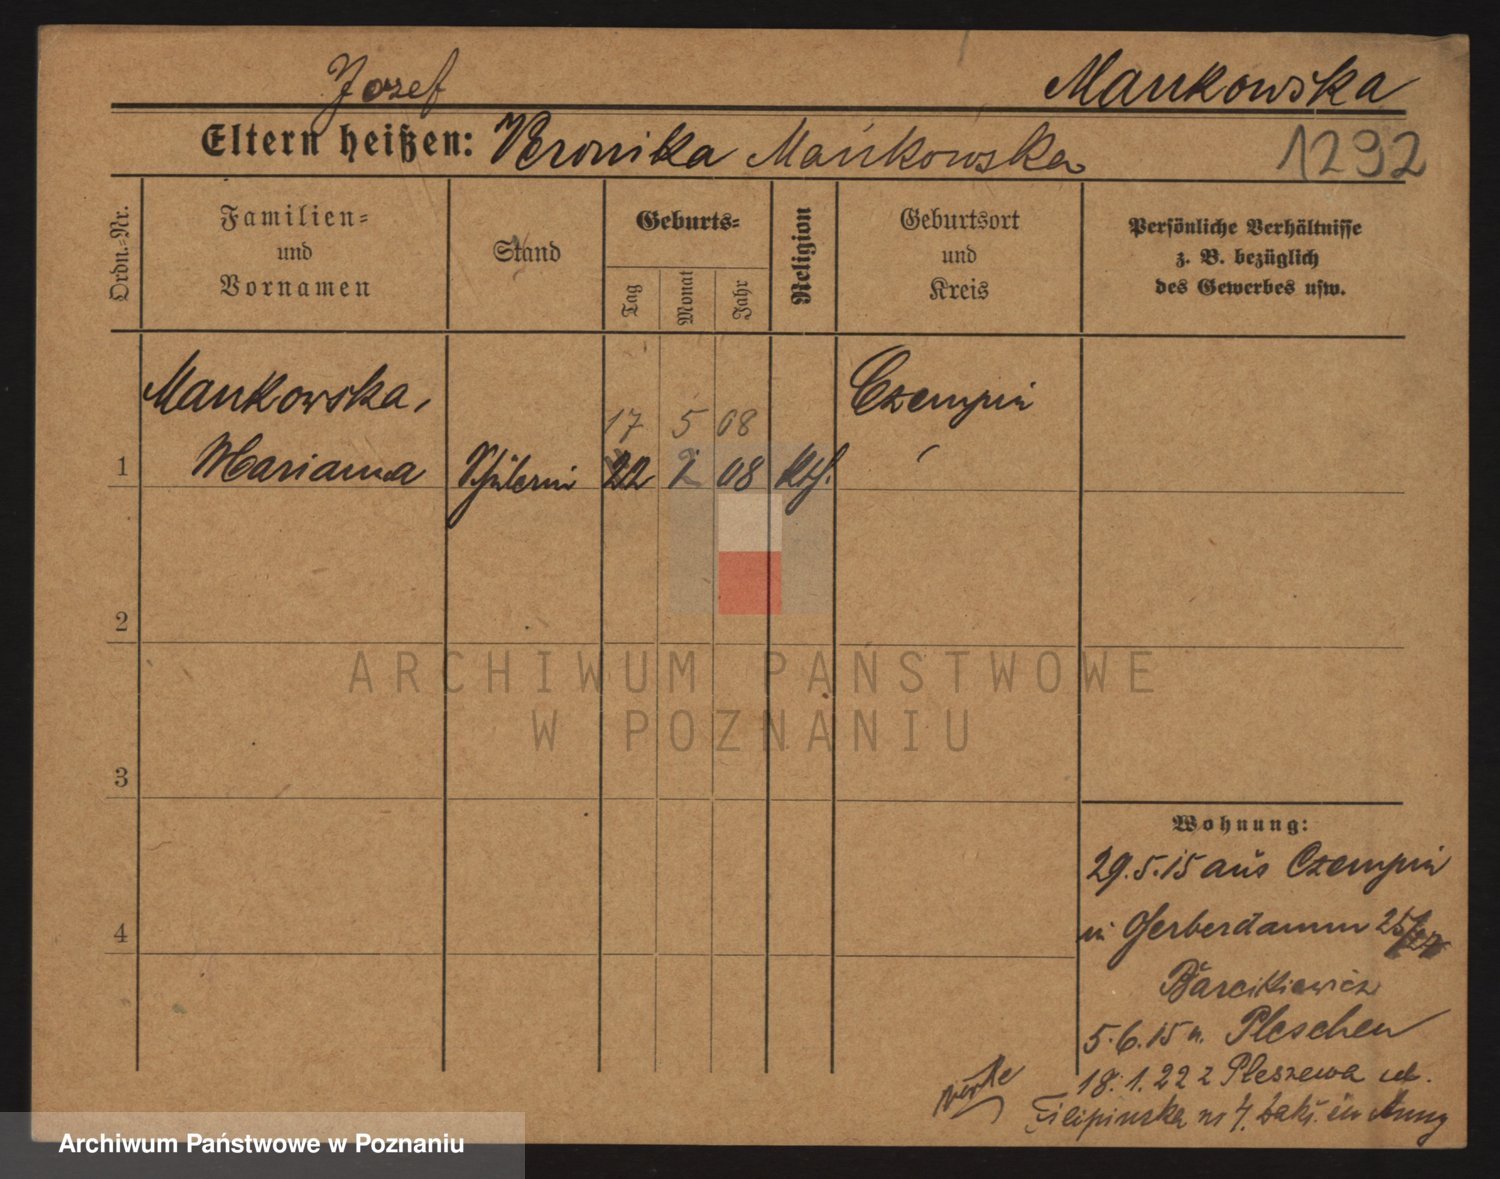 Jozef
Mankowska
Eltern heißen: Veronika Mańkowska
1292
Ordn.=Nr.
Familien=
und
Vornamen
Stand
Geburts=
Tag
Monat
Jahr
Religion
Geburtsort
und
Kreis
Persönliche Verhältnisse
z. B. bezüglich
des Gewerbes usw.
Mankowska,
17 5 08
Czempin
1
Marianna Schülerin 22 2 08 Kth.
2
ARCHIWUM PAŃSTWOWE
W POZNANIU
3
Wohnung:
29.5.15 aus Czempin
4
in Gerberdamm 25/
Barcikiewicz
5.6.15 n. Pleschen
18.1.22 z Pleszewa ul.
Filipinska nr 4. Anny
Archiwum Państwowe w Poznaniu